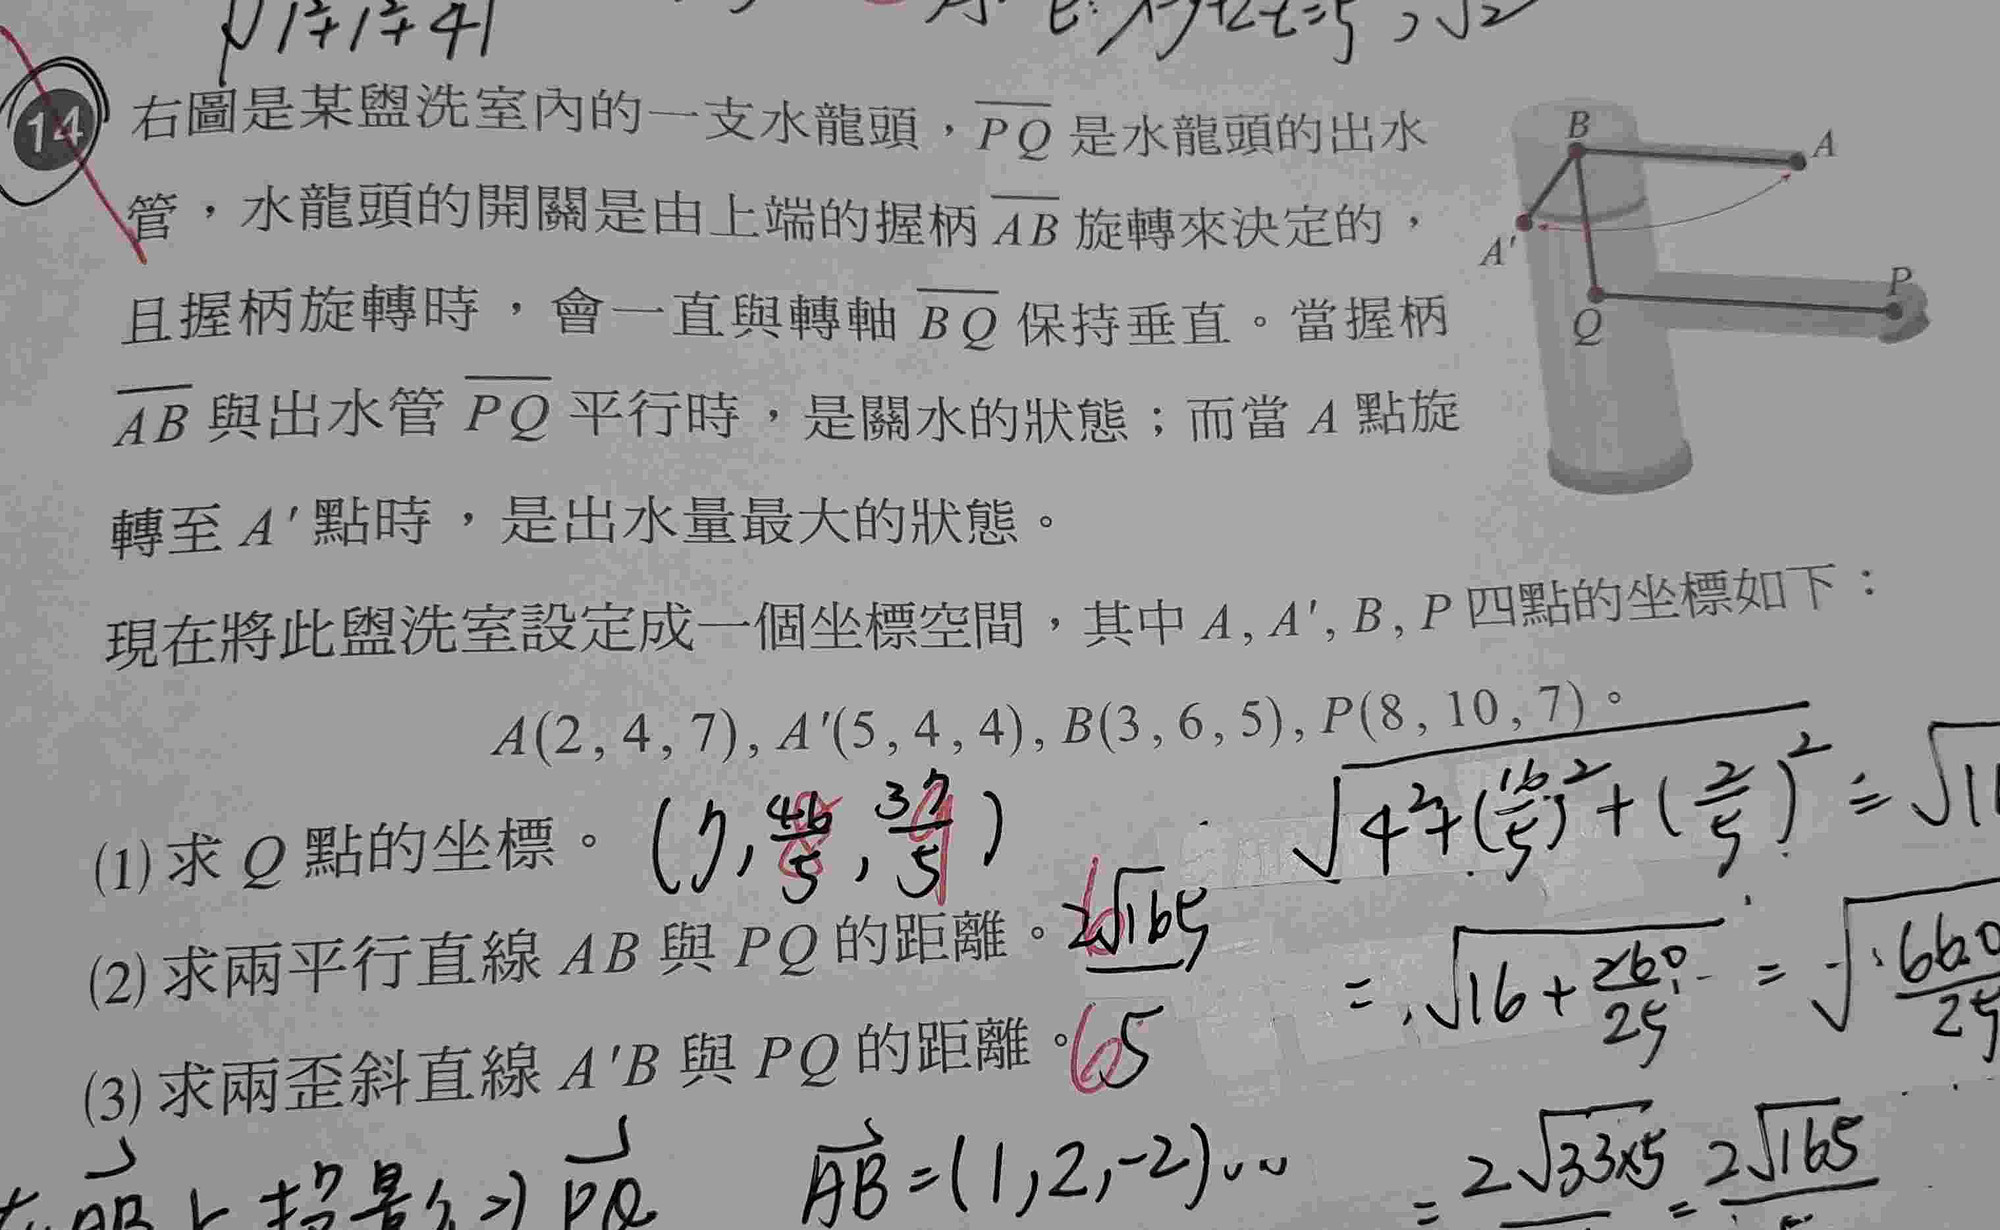 √1²+1²+4
E: x-y+2z=5, √2
14 右圖是某盥洗室內的一支水龍頭，PQ 是水龍頭的出水
管，水龍頭的開關是由上端的握柄 AB 旋轉來決定的，
且握柄旋轉時，會一直與轉軸 BQ 保持垂直。當握柄
AB 與出水管 PQ 平行時，是關水的狀態；而當 A 點旋
轉至 A′ 點時，是出水量最大的狀態。
B
A
A′
Q
P
現在將此盥洗室設定成一個坐標空間，其中 A, A′, B, P 四點的坐標如下：
A(2, 4, 7), A′(5, 4, 4), B(3, 6, 5), P(8, 10, 7)。
(1) 求 Q 點的坐標。 (7, 46/5, 37/5)
√4²+(16/5)²+(2/5)² =
(2) 求兩平行直線 AB 與 PQ 的距離。 2√165/5
= √16+260/25 = √660/25
(3) 求兩歪斜直線 A′B 與 PQ 的距離。 6
AB 上 投影 PQ
AB=(1,2,-2)
= 2√33×5 = 2√165